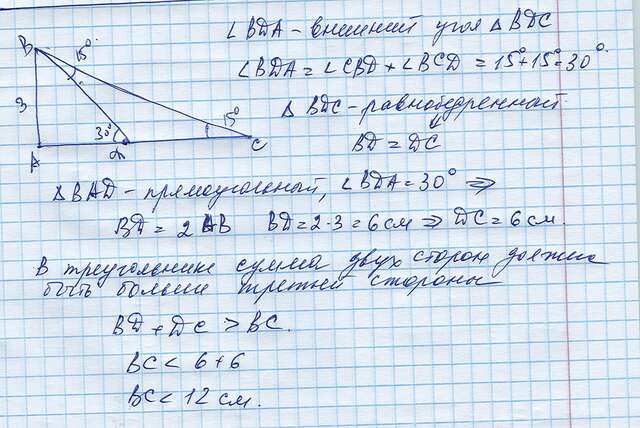 ∠BDA - внешний угол △BDC
∠BDA = ∠CBD + ∠BCD = 15° + 15° = 30°.
△ BDC - равнобедренный
⇓
BD = DC
B
15°
3
30°
15°
A
D
C
△BAD - прямоугольный, ∠BDA = 30° ⇒
BD = 2 AB BD = 2·3 = 6 см ⇒ DC = 6 см.
В треугольнике сумма двух сторон должна
быть больше третьей стороны
BD + DC > BC.
BC < 6 + 6
BC < 12 см.